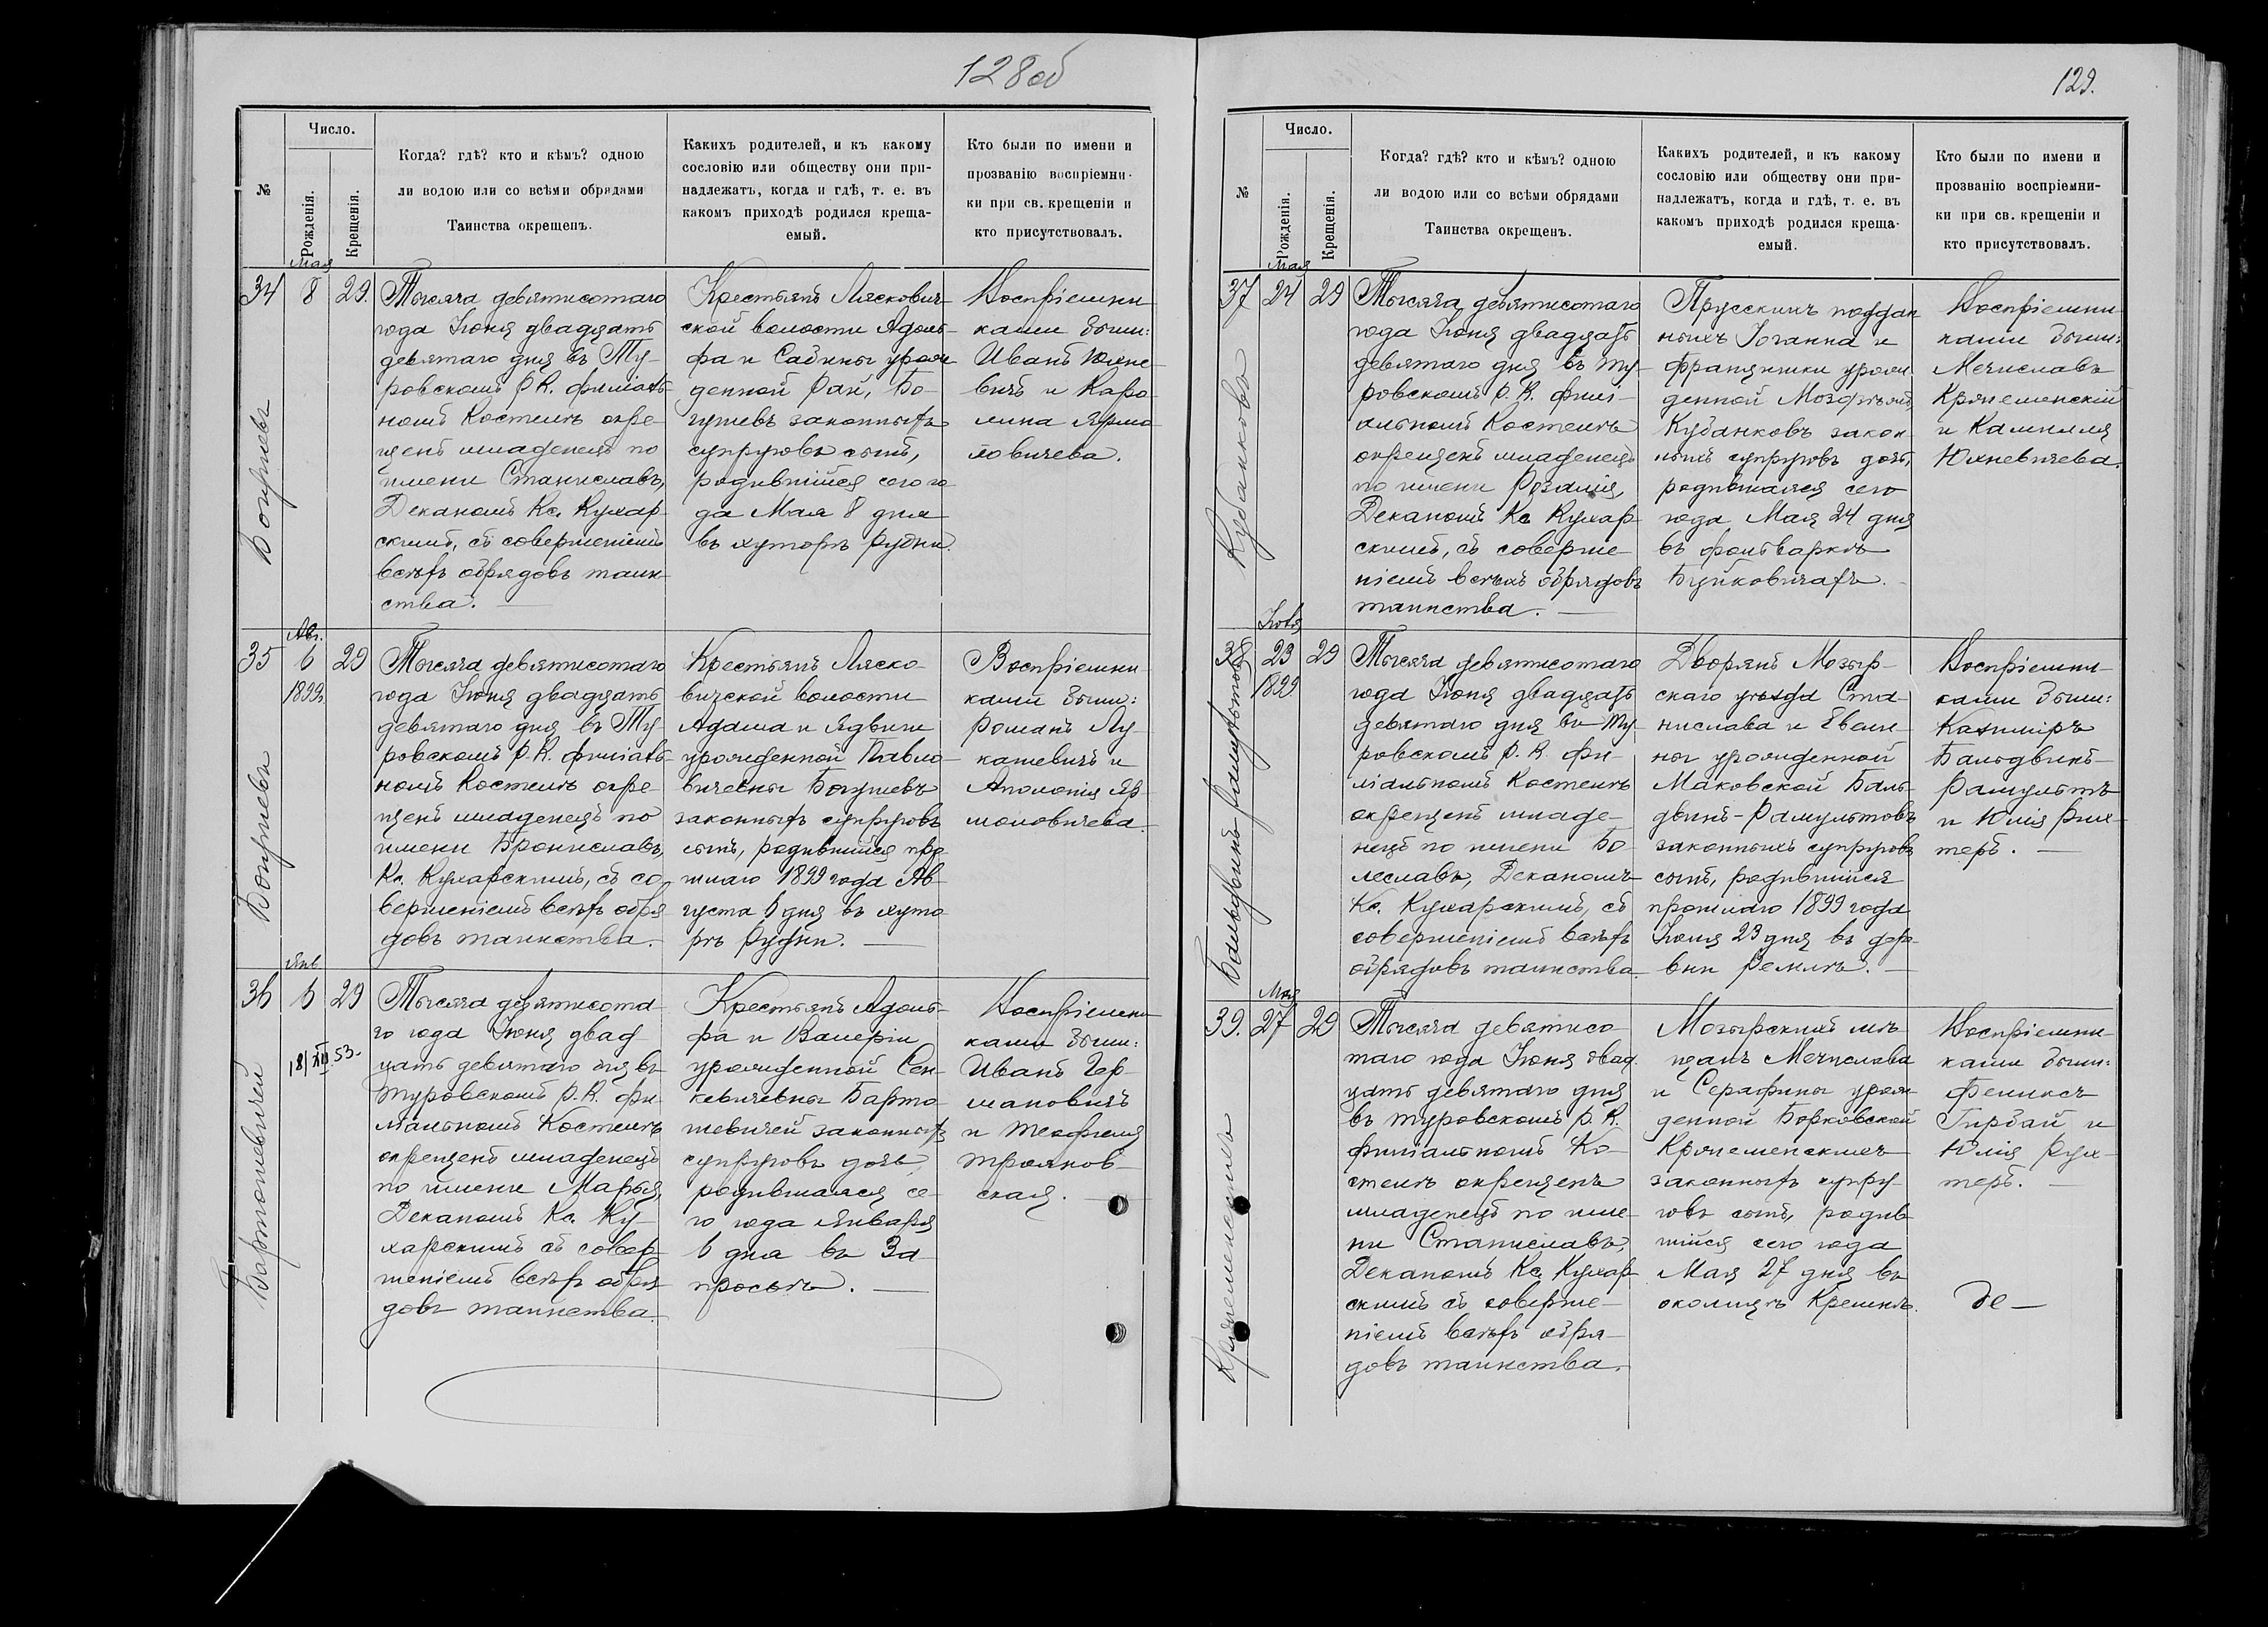 128об
№
Число.
Рожденія.
Крещенія.
Когда? гдѣ? кто и кѣмъ? одною
ли водою или со всѣми обрядами
Таинства окрещенъ.
Каихъ родителей, и къ какому
сословію или обществу они при-
надлежатъ, когда и гдѣ, т. е. въ
какомъ приходѣ родился креща-
емый.
Кто были по имени и
прозванію воспріемни-
ки при св. крещеніи и
кто присутствовалъ.
Мая
34 8 29.
Богушевъ
Тысяча девятисотаго
года Іюня двадцать
девятаго дня въ Ту-
ровскомъ Р.К. филіаль-
номъ Костелѣ окре-
щенъ младенецъ по
имени Станиславъ,
Деканомъ Кс. Кухар-
скимъ, съ совершеніемъ
всѣхъ обрядовъ таин-
ства.
Крестьянъ Лясковичъ-
ской волости Адоль-
фа и Сабины урож-
денной Рай, Бо-
гушевъ законныхъ
супруговъ сынъ,
родившійся сего го-
да Мая 8 дня
въ хуторѣ Рудни.
Воспріемни-
ками были:
Иванъ Юхне-
вичъ и Каро-
лина Ярмо-
ловичева.
Авг.
35 6 29
1899.
Богушевъ
Тысяча девятисотаго
года Іюня двадцать
девятаго дня въ Ту-
ровскомъ Р.К. филіаль-
номъ Костелѣ окре-
щенъ младенецъ по
имени Брониславъ,
Кс. Кухарскимъ, съ со-
вершеніемъ всѣхъ обря-
довъ таинства.
Крестьянъ Ляско-
вичской волости
Адама и Ядвиги
урожденной Павло-
вичевны Богушевъ
законныхъ супруговъ
сынъ, родившійся про-
шлаго 1899 года Ав-
густа 6 дня въ хуто-
рѣ Рудни.
Воспріемни-
ками были:
Романъ Лу-
кашевичъ и
Аполонія Яр-
моловичева.
Янв
36 6 29
18/XII 53.
Бартошевичей
Тысяча девятисота-
го года Іюня двад-
цать девятаго дня въ
Туровскомъ Р.К. фи-
ліальномъ Костелѣ
окрещенъ младенецъ
по имени Марья,
Деканомъ Кс. Ку-
харскимъ съ совер-
шеніемъ всѣхъ обря-
довъ таинства.
Крестьянъ Адоль-
фа и Валеріи
урожденной Сен-
кевичевны Барто-
шевичей законныхъ
супруговъ дочь,
родившаяся се-
го года Января
6 дня въ За-
просьѣ.
Воспріемни-
ками были:
Иванъ Гер-
мановичъ
и Теофилія
Трояков-
ская.
129.
№
Число.
Рожденія.
Крещенія.
Когда? гдѣ? кто и кѣмъ? одною
ли водою или со всѣми обрядами
Таинства окрещенъ.
Каихъ родителей, и къ какому
сословію или обществу они при-
надлежатъ, когда и гдѣ, т. е. въ
какомъ приходѣ родился креща-
емый.
Кто были по имени и
прозванію воспріемни-
ки при св. крещеніи и
кто присутствовалъ.
Мая
37 24 29
Кубанковъ
Тысяча девятисотаго
года Іюня двадцать
девятаго дня въ Ту-
ровскомъ Р.К. филі-
альномъ Костелѣ
окрещенъ младенецъ
по имени Розалія,
Деканомъ Кс. Кухар-
скимъ, съ соверше-
ніемъ всѣхъ обрядовъ
таинства.
Прусскихъ поддан-
ныхъ Іоганна и
Францишки урож-
денной
Кубанковъ закон-
ныхъ супруговъ дочь,
родившаяся сего
года Мая 24 дня
въ фольваркѣ
Буйковичахъ.
Воспріемни-
ками были:
Мечиславъ
Кржеменскій
и Камилля
Юхневичева.
Іюня
38 23 29
1899
Бальдвинъ-Рамультовъ
Тысяча девятисотаго
года Іюня двадцать
девятаго дня въ Ту-
ровскомъ Р.К. фи-
ліальномъ Костелѣ
окрещенъ младе-
нецъ по имени Бо-
леславъ, Деканомъ
Кс. Кухарскимъ, съ
совершеніемъ всѣхъ
обрядовъ таинства.
Дворянъ Мозыр-
скаго уѣзда Ста-
нислава и Евели-
ны урожденной
Маковской Баль-
двинъ-Рамультовъ
законныхъ супруговъ
сынъ, родившійся
прошлаго 1899 года
Іюня 23 дня въ дере-
вни Ремлѣ.
Воспріемни-
ками были:
Казиміръ
Бальдвинъ-
Рамультъ
и Юлія Рих-
теръ.
Мая
39. 27 29
Кржеменскихъ
Тысяча девятисо-
таго года Іюня двад-
цать девятаго дня
въ Туровскомъ Р.К.
филіальномъ Ко-
стелѣ окрещенъ
младенецъ по име-
ни Станиславъ,
Деканомъ Кс. Кухар-
скимъ съ соверше-
ніемъ всѣхъ обря-
довъ таинства.
Мозырскихъ мѣ-
щанъ Мечислава
и Серафины урож-
денной Борковской
Кржеменскихъ
законныхъ супру-
говъ сынъ, родив-
шійся сего года
Мая 27 дня въ
околицѣ Кремнѣ.
Воспріемни-
ками были:
Феликсъ
Гирдай и
Юлія Рих-
теръ.